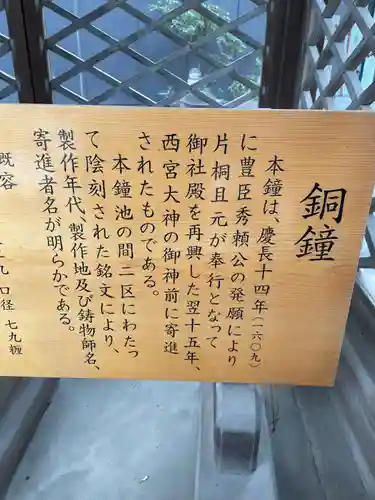 銅鐘
本鐘は、慶長十四年(一六〇九)
に豊臣秀頼公の発願により
片桐且元が奉行となって
御社殿を再興した翌十五年、
西宮大神の御神前に寄進
されたものである。
本鐘池の間二区にわたっ
て陰刻された銘文により、
製作年代、製作地及び鋳物師名、
寄進者名が明らかである。
口径 七九糎